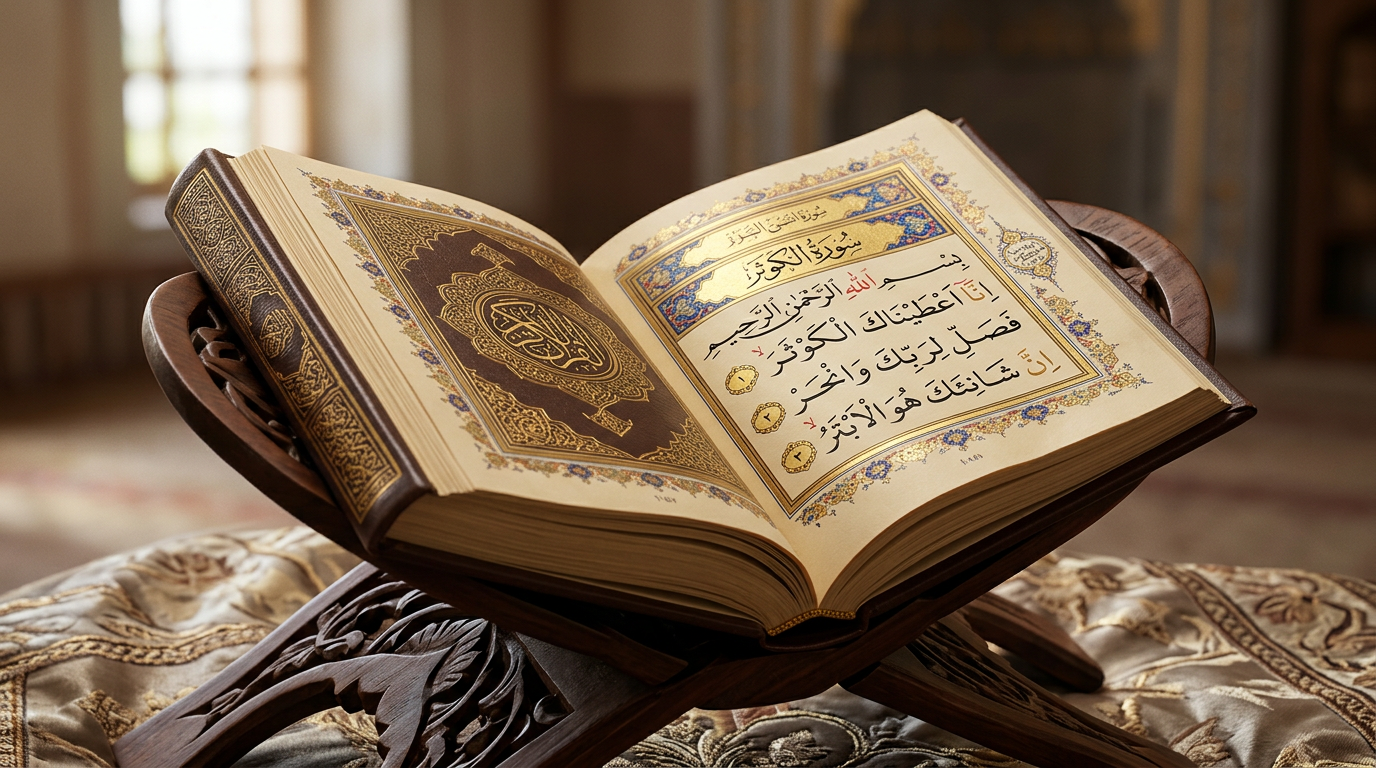 سُورَةُ الْكَوْثَرِ
بِسْمِ اللّٰهِ الرَّحْمٰنِ الرَّحِيمِ
اِنَّٓا اَعْطَيْنَاكَ الْكَوْثَرَ ١
فَصَلِّ لِرَبِّكَ وَانْحَرْ ٢
اِنَّ شَانِئَكَ هُوَ الْاَبْتَرُ ٣